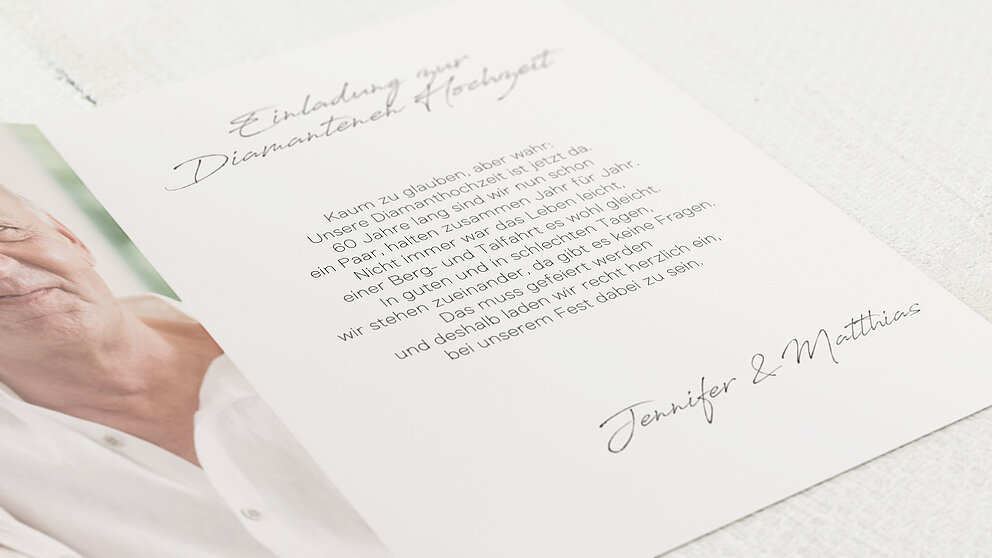 Einladung zur
Diamantenen Hochzeit
Kaum zu glauben, aber wahr:
Unsere Diamanthochzeit ist jetzt da.
60 Jahre lang sind wir nun schon
ein Paar, halten zusammen Jahr für Jahr.
Nicht immer war das Leben leicht,
einer Berg- und Talfahrt es wohl gleicht.
In guten und in schlechten Tagen,
wir stehen zueinander, da gibt es keine Fragen.
Das muss gefeiert werden
und deshalb laden wir recht herzlich ein,
bei unserem Fest dabei zu sein.
Jennifer & Matthias